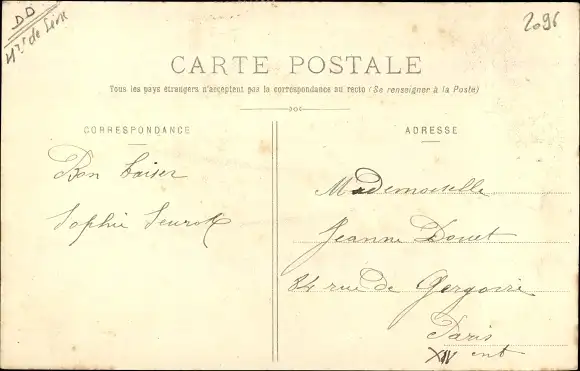 DD
Hts de Seine
2096
CARTE POSTALE
Tous les pays étrangers n'acceptent pas la correspondance au recto (Se renseigner à la Poste)
CORRESPONDANCE
Bon baiser
Sophie
ADRESSE
Mademoiselle
Jeanne Douet
84 rue de Gergovie
Paris
XIV ent